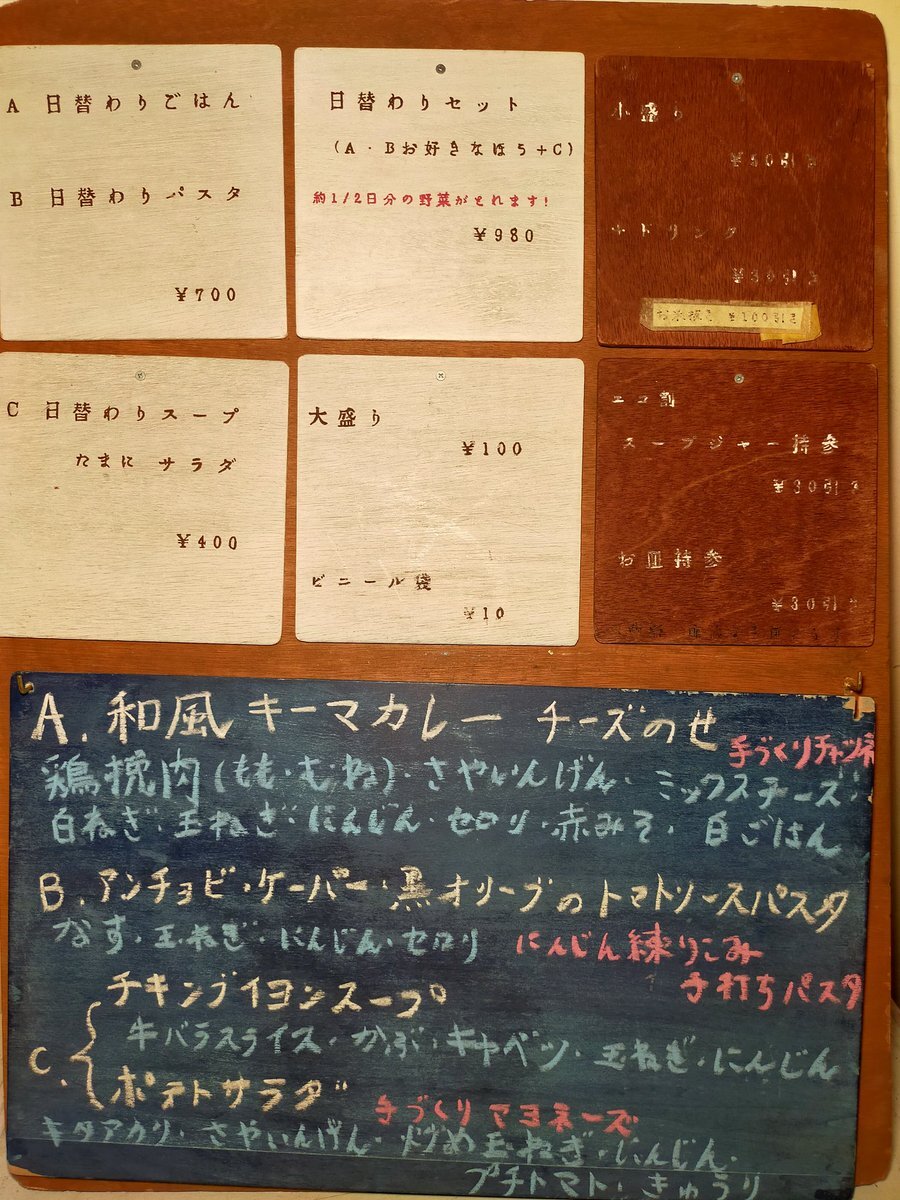 A 日替わりごはん
B 日替わりパスタ
¥700
日替わりセット
(A・Bお好きなほう+C)
約1/2日分の野菜がとれます!
¥980
小盛り
¥50引き
+ドリンク
¥30引き
¥100引き
C 日替わりスープ
たまに サラダ
¥400
大盛り
¥100
ビニール袋
¥10
エコ割
スープジャー持参
¥30引き
お皿持参
¥30引き
A. 和風キーマカレー チーズのせ
手づくりチャツネ
鶏挽肉(もも・むね)・さやいんげん・ミックスチーズ・
白ねぎ・玉ねぎ・にんじん・セロリ・赤みそ・白ごはん
B. アンチョビ・ケーパー・黒オリーブのトマトソースパスタ
なす・玉ねぎ・にんじん・セロリ
にんじん練りこみ
手打ちパスタ
C.
チキンブイヨンスープ
牛バラスライス・かぶ・キャベツ・玉ねぎ・にんじん
ポテトサラダ
手づくりマヨネーズ
キタアカリ・さやいんげん・炒め玉ねぎ・にんじん・
プチトマト・きゅうり